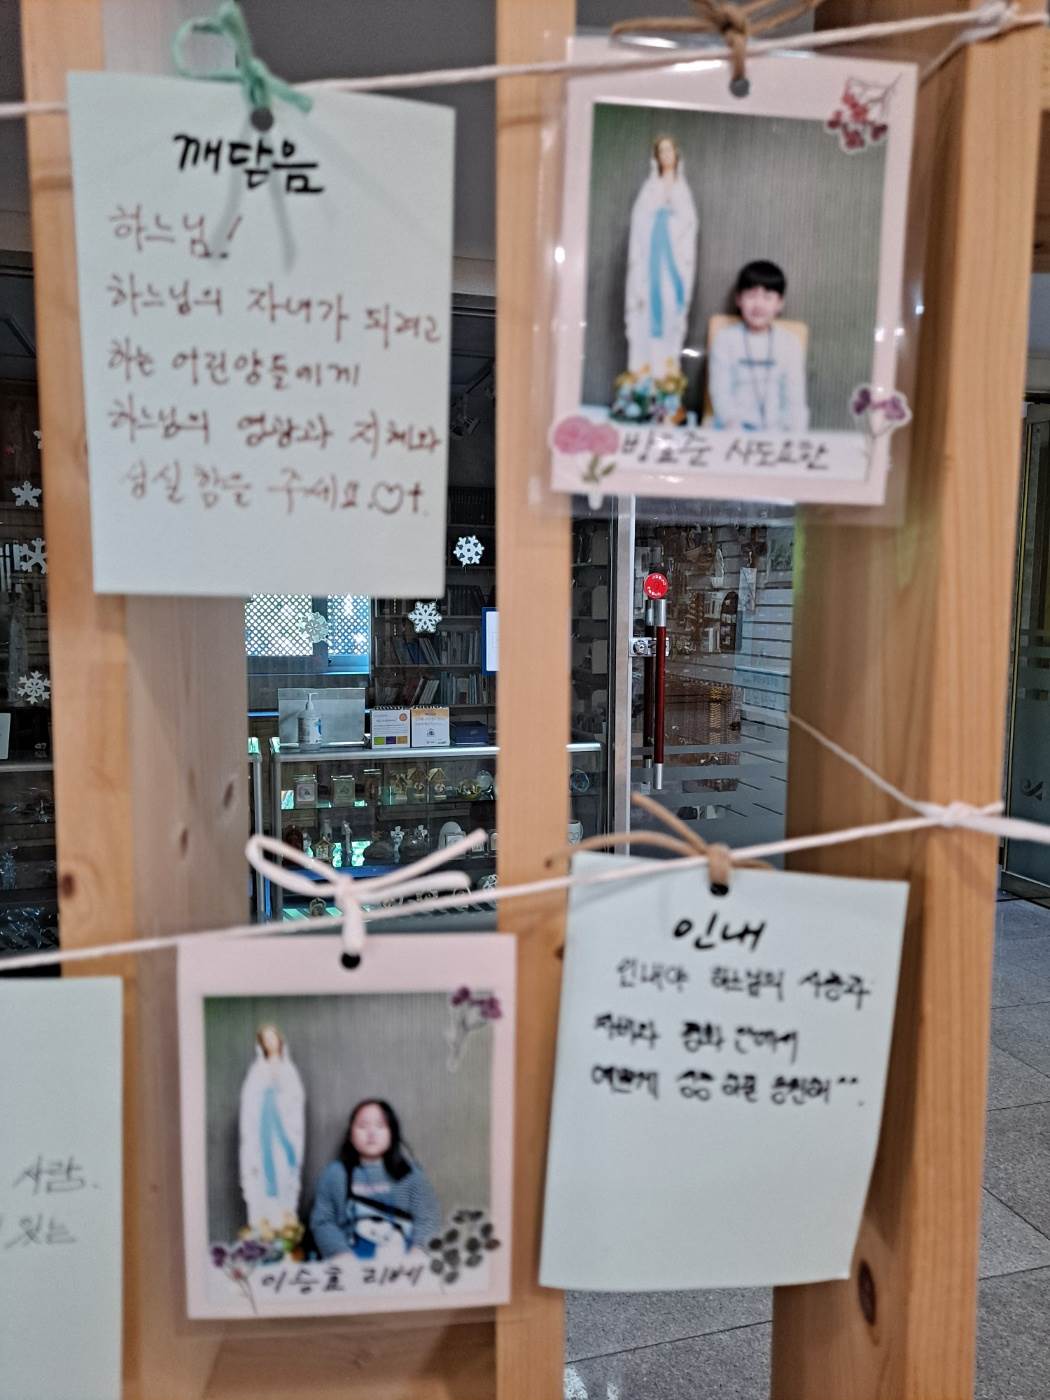 깨닫음
하느님!
하느님의 자녀가 되려고
하는 어린양들에게
하느님의 영광과 지혜와
성실함을 주세요.♡+.
방효준 사도요한
인내
인내야 하느님의 사랑과
자비와 평화 안에서
예쁘게 성장 하길 응원해^^.
사람.
있는
이승효 리베